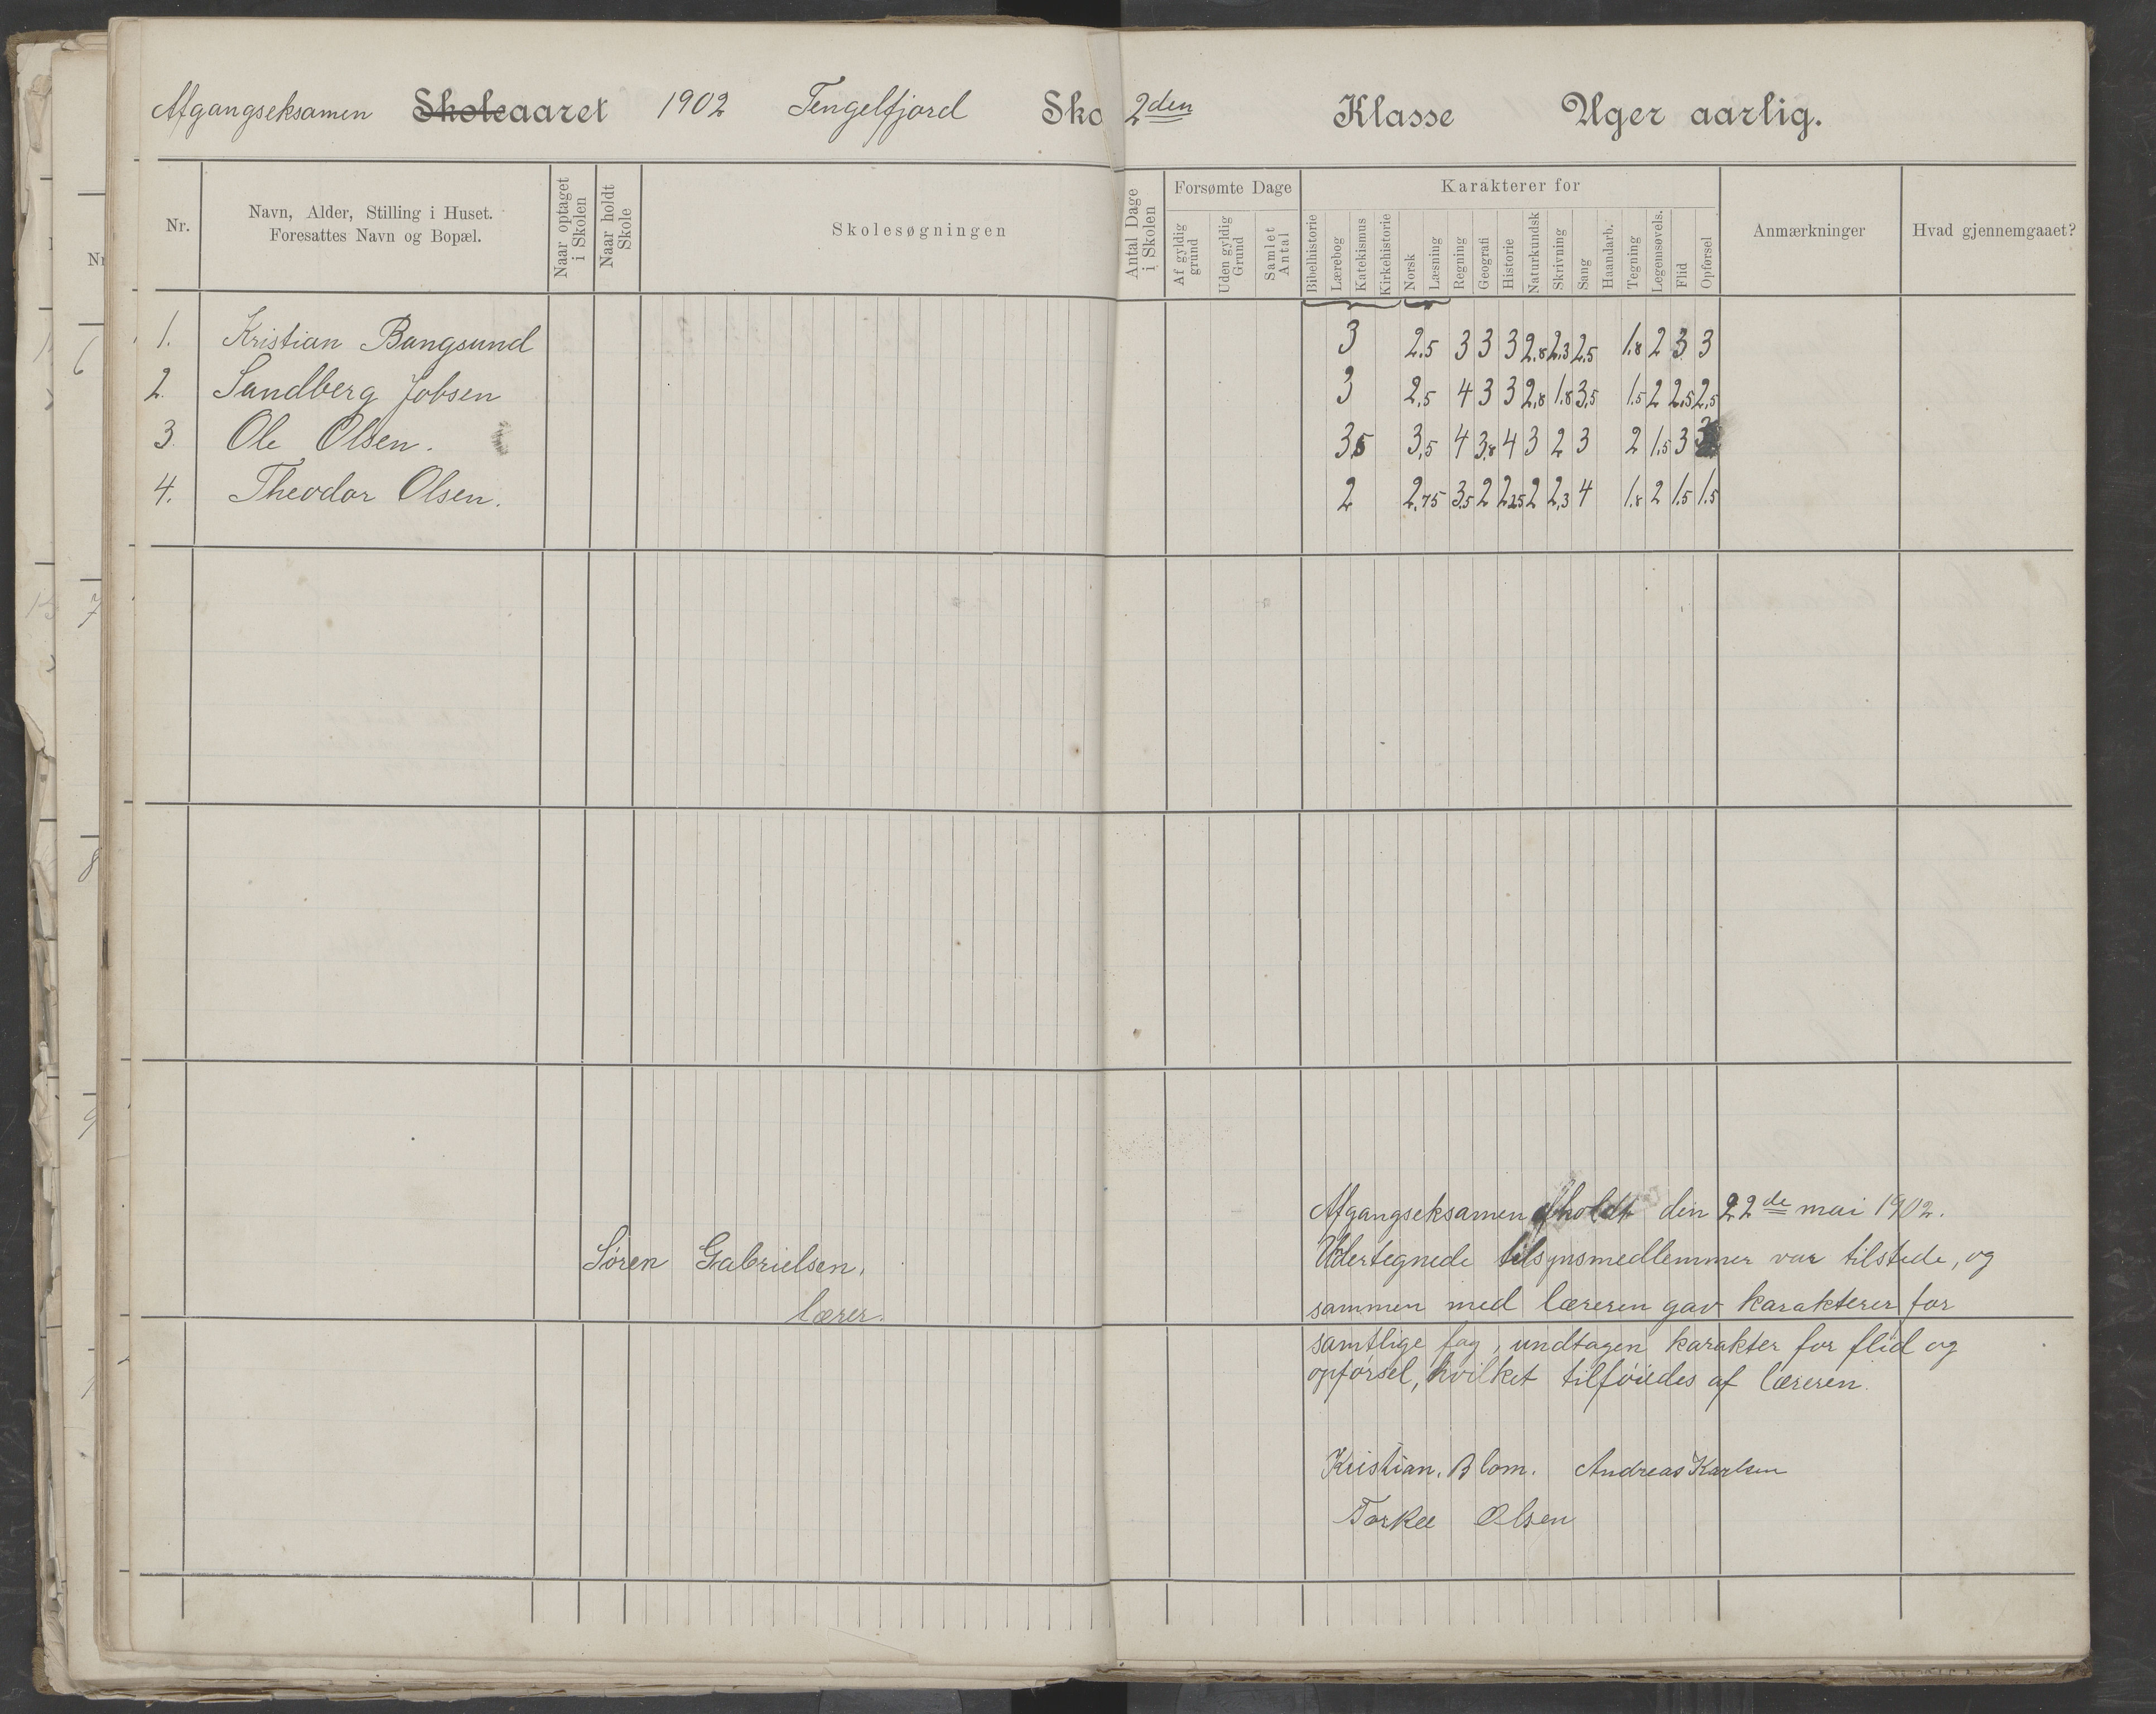 Afgangseksamen Skoleaaret 1902 Tengelfjord Sko 2den Klasse Uger aarlig.
Nr.
Navn, Alder, Stilling i Huset.
Foresattes Navn og Bopæl.
Naar optaget
i Skolen
Naar holdt
Skole
Skolesøgningen
Antal Dage
i Skolen
Forsømte Dage
Af gyldig
grund
Uden gyldig
Grund
Samlet
Antal
Karakterer for
Bibelhistorie
Lærebog
Katekismus
Kirkehistorie
Norsk
Læsning
Regning
Geografi
Historie
Naturkundsk
Skrivning
Sang
Haandarb.
Tegning
Legemsøvels.
Flid
Opførsel
Anmærkninger
Hvad gjennemgaaet?
1. Kristian Bangsund 3 2,5 3 3 3 2,8 2,3 2,5 1,8 2 3 3
2. Sandberg Jobsen 3 2,5 4 3 3 2,8 1,8 3,5 1,5 2 2,5 2,5
3. Ole Olsen. 3,5 3,5 4 3,8 4 3 2 3 2 1,5 3 3
4. Theodor Olsen. 2 2,75 3,5 2 2,25 2 2,3 4 1,8 2 1,5 1,5
Søren Gabrielsen,
lærer.
Afgangseksamen afholdt den 22de mai 1902.
Undertegnede tilsynsmedlemmer var tilstede, og
sammen med læreren gav karakterer for
samtlige fag, undtagen karakter for flid og
opførsel, hvilket tilføiedes af læreren.
Kristian. Blom. Andreas Karlsen
Torkel Olsen
Nr
6
7
8
9